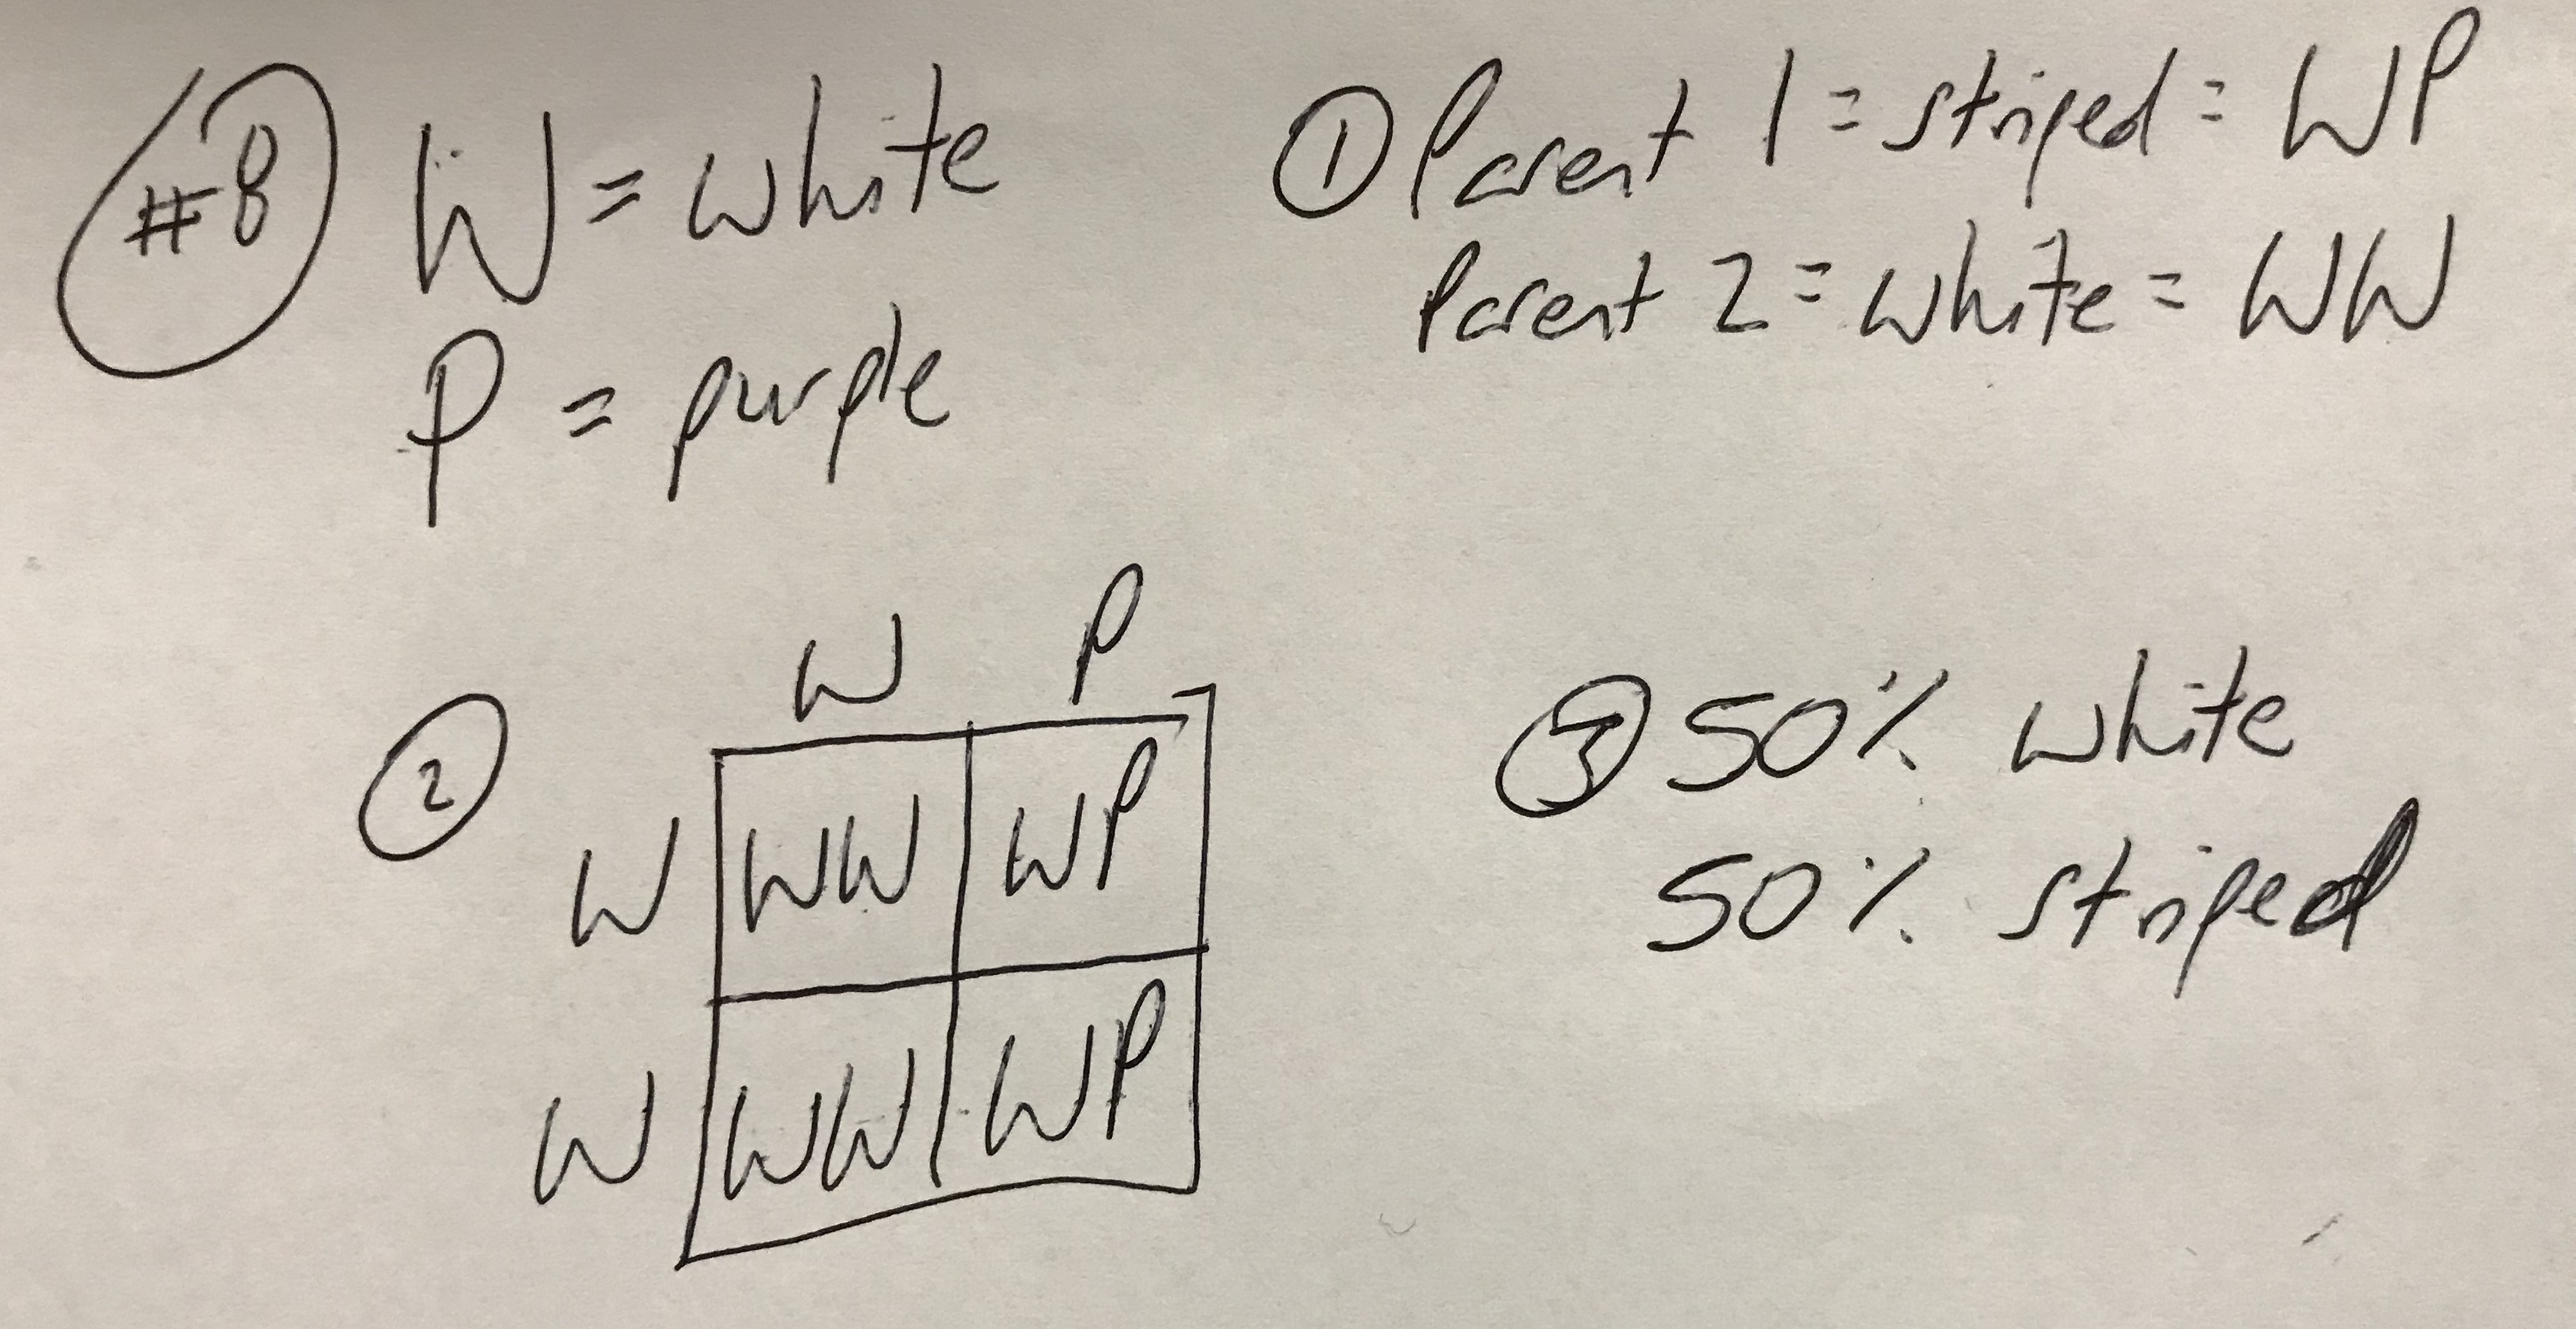 #8
W = white
P = purple
① Parent 1 = striped = WP
Parent 2 = white = WW
②
W P
W WW WP
W WW WP
③ 50% white
50% striped